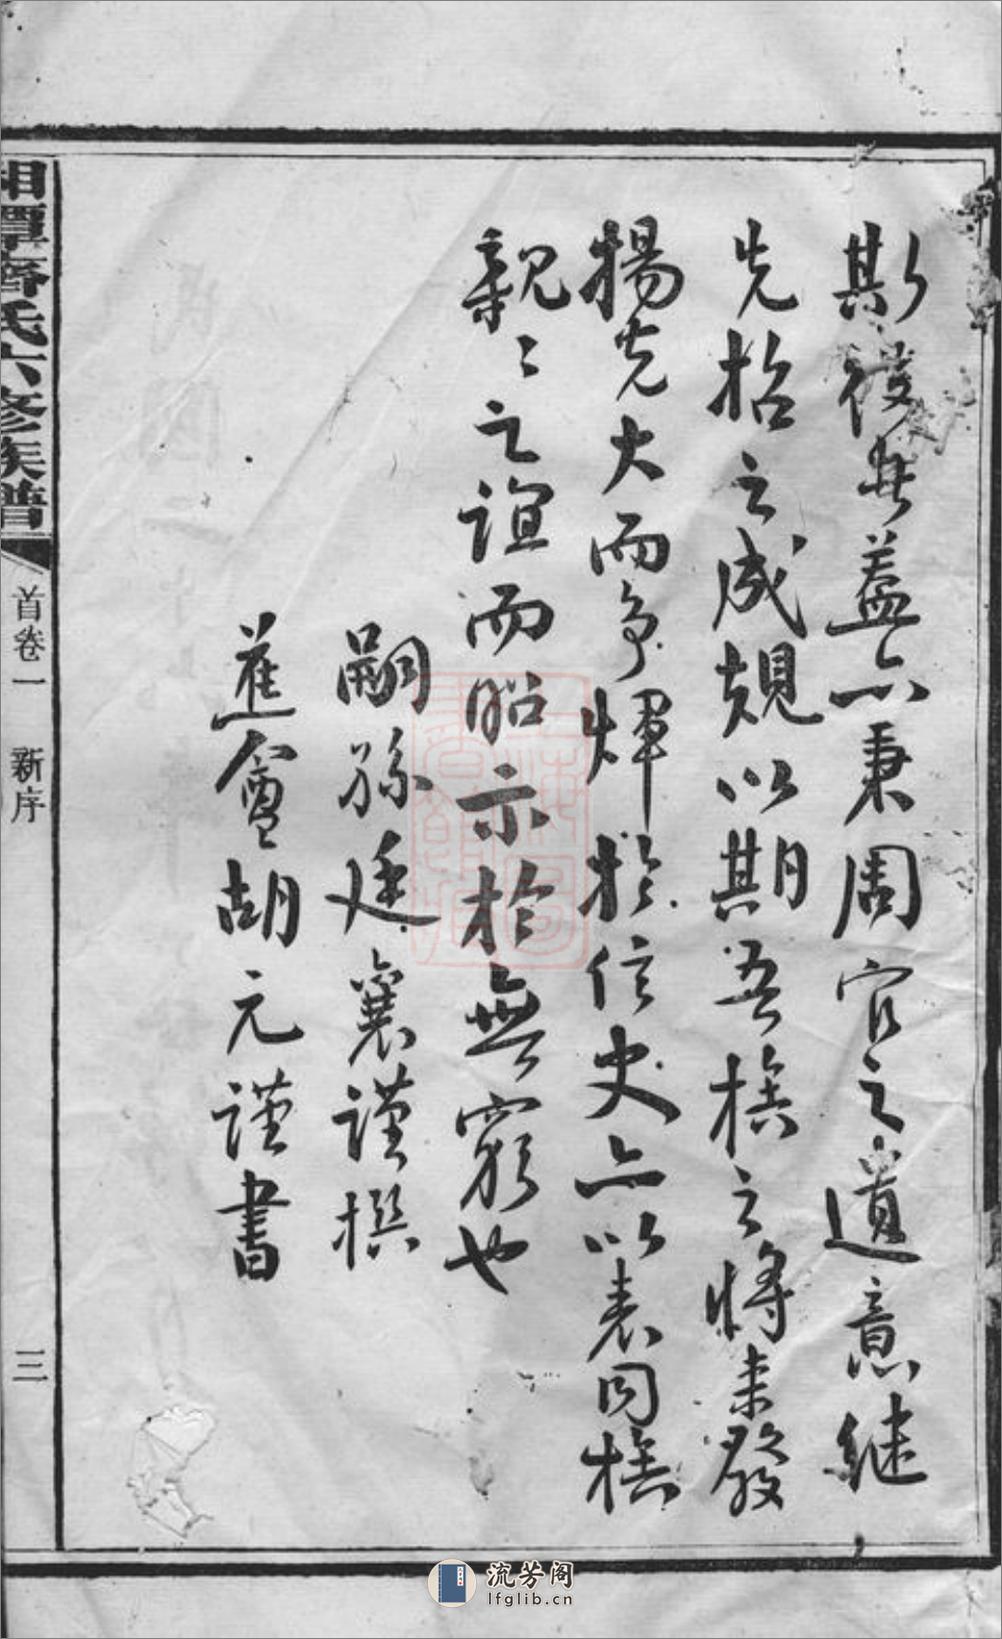 斯役者蓋亦秉周官之遺意継
先招之成規以期吾族之將來發
揚光大而爭煇於信史亦以表同族
親〻之誼而昭示於無窮也
嗣孫廷襄謹撰
蕉盦胡元謹書
湘潭齊氏六修族譜
首卷一 新序
三
流芳阁
lfglib.cn